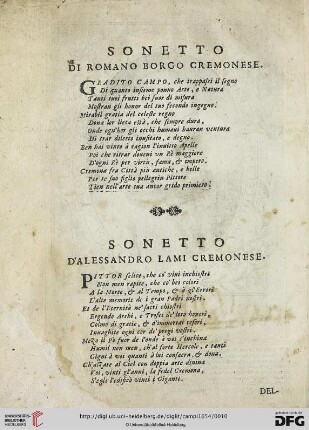 SONETTO
DI ROMANO BORGO CREMONESE.
GRADITO CAMPO, che trappassi il segno
Di quanto insieme ponno Arte, e Natura
Tanti tuoi frutti bei fuor di misura
Mostran gli honor del tuo fecondo ingegno.
Mirabil gratia del celeste regno
Dona lor lieta età, che sempre dura,
Onde ogn'hor gli occhi humani hauran ventura
Di trar diletto inusitato, e degno.
Ben hai vinto à ragion l'inuitto Apelle
Poi che ritrar doueui un Rè maggiore
D'ogni Rè per virtù, fama, & impero.
Cremona fra Città più antiche, e belle
Per te suo figlio pellegrin Pittore
Tien nell'arte tua ancor grido primiero.
SONETTO
D'ALESSANDRO LAMI CREMONESE.
PITTOR felice, che co' vini inchiostri
Non men rapite, che co' bei colori
A la Morte, & al Tempo, & à gl'errori
L'alte memorie de i gran Padri nostri.
Et de l'Eternità ne' sacri chiostri
Ergendo Archi, e Trofei de' loro honori,
Colmi di gratie, & d'immortai tesori,
Inuaghite ogni cor de' pregi vostri.
Mezo il Pò fuor de l'onde à voi s'inchina
Humil non men, ch'al forte Hercole, e tanti
Gigni à voi quanti à lui consacra, & dona,
Ch'alzare al Ciel con doppia arte diuina
Voi, vinti gl'anni, la fedel Cremona,
S'egli l'edificò vinti i Giganti.
DEL-
http://digi.ub.uni-heidelberg.de/diglit/campi1654/0010
© Universitätsbibliothek Heidelberg
UNIVERSITÄTS-
BIBLIOTHEK
HEIDELBERG